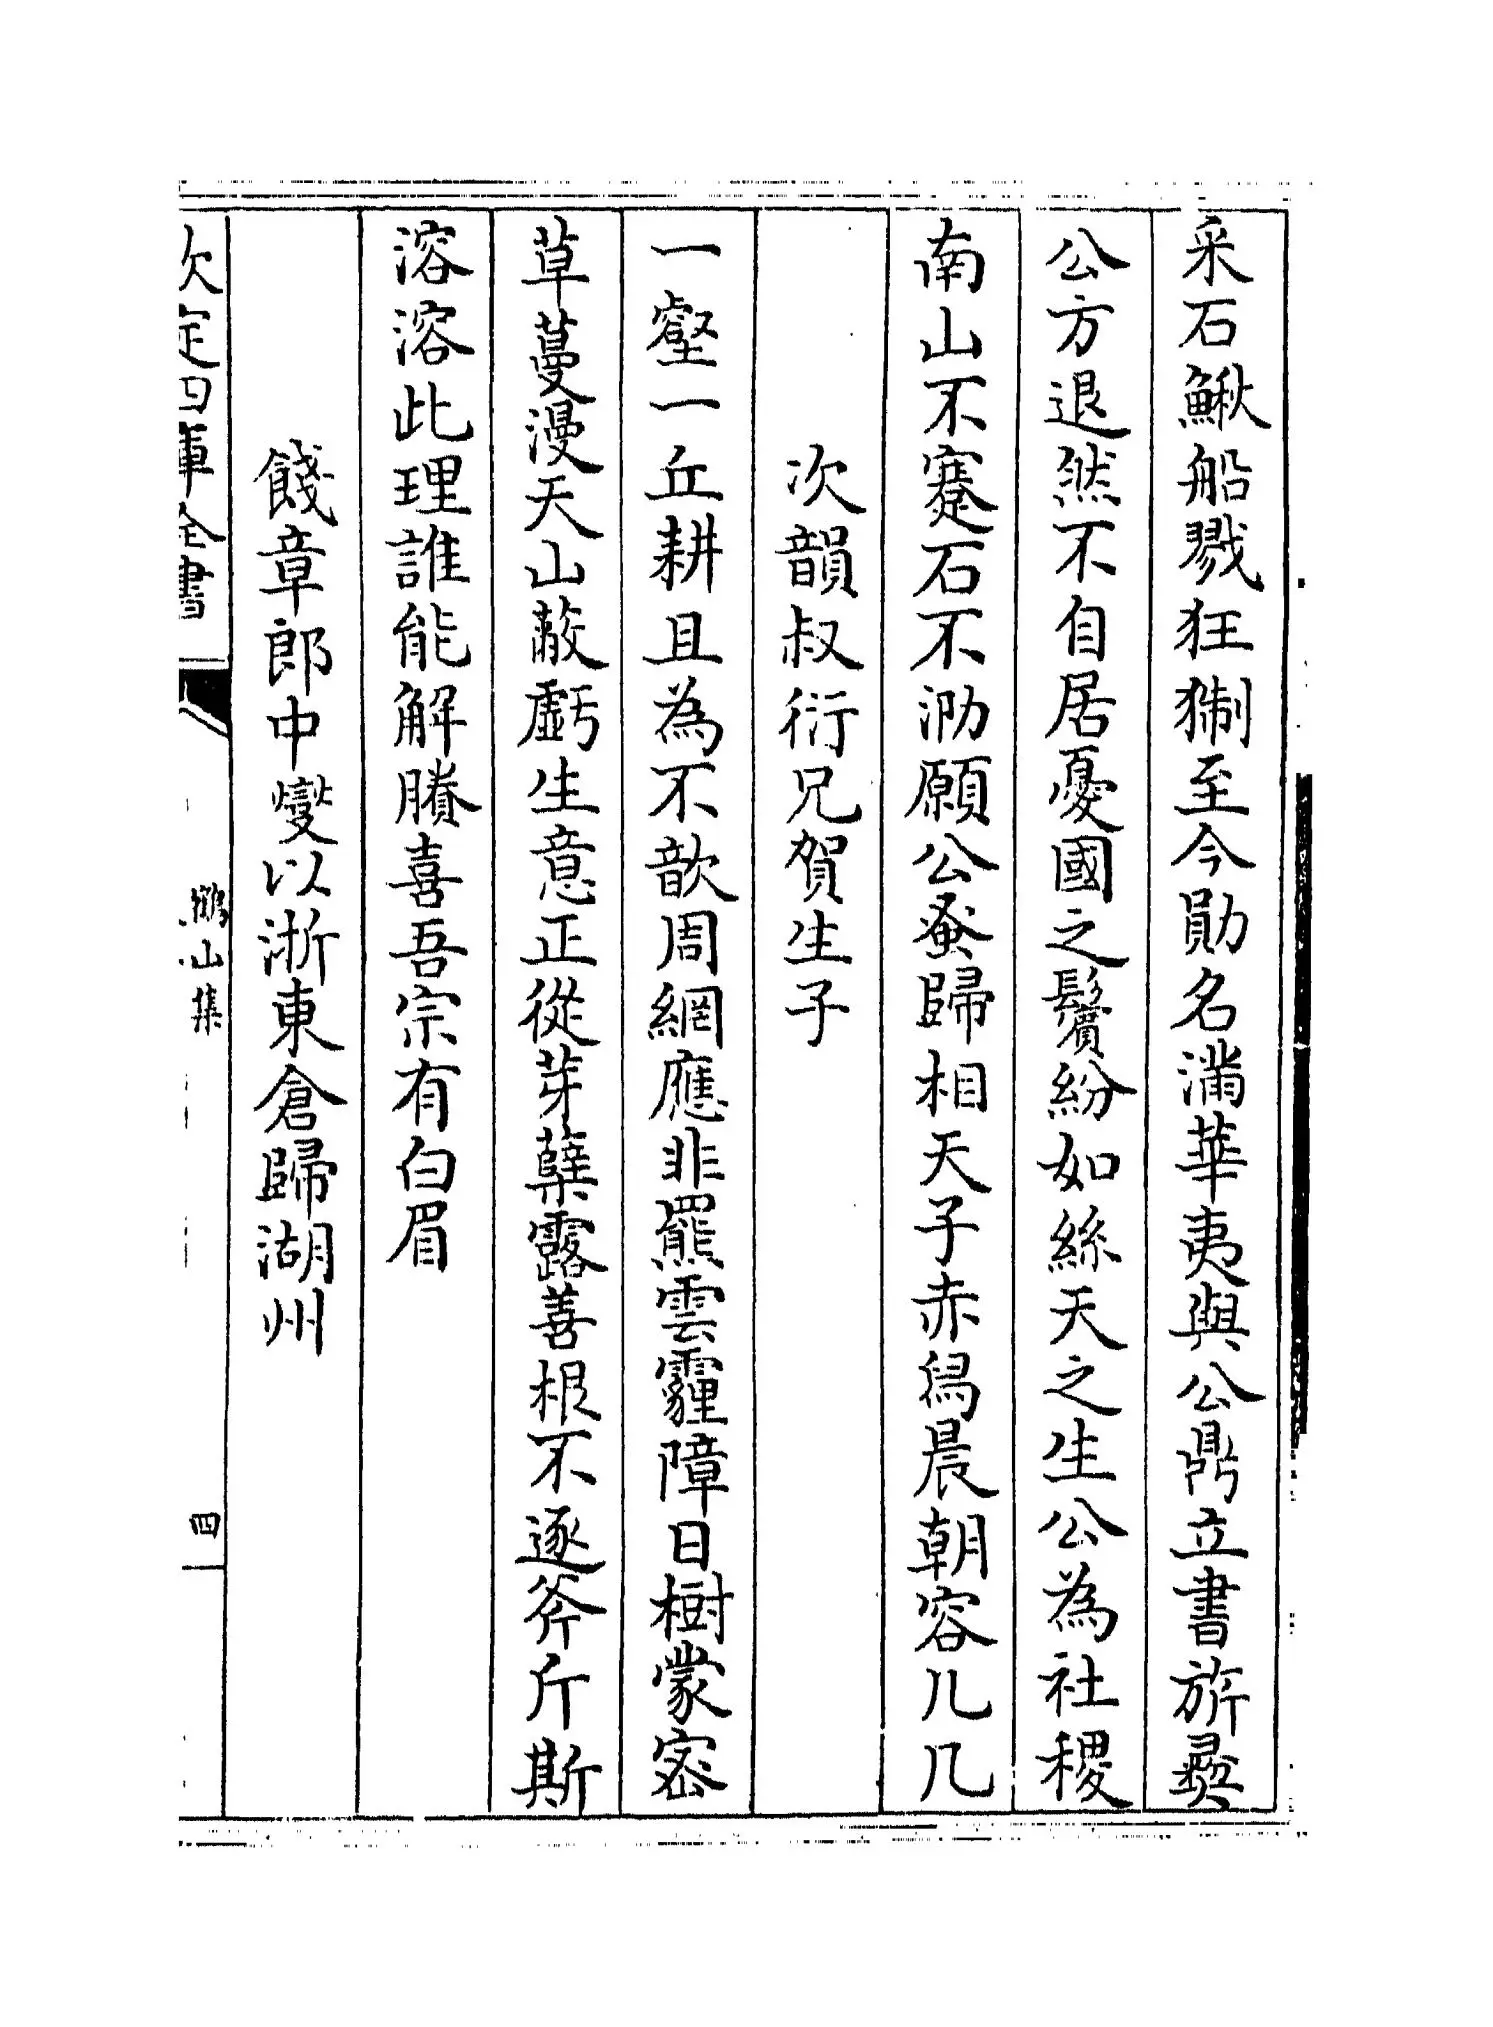 采石鰍船戮狂猘至今勛名滿華夷與公鼎立書旂彞
公方退然不自居憂國之鬢紛如絲天之生公為社稷
南山不騫石不泐願公蚤歸相天子赤舄晨朝容几几
次韻叔衍兄賀生子
一壑一丘耕且為不歆周網應非羆雲霾障日樹蒙密
草蔓漫天山蔽虧生意正從芽蘖露善根不逐斧斤斯
溶溶此理誰能解賸喜吾宗有白眉
餞章郎中燮以浙東倉歸湖州
欽定四庫全書
鶴山集
四